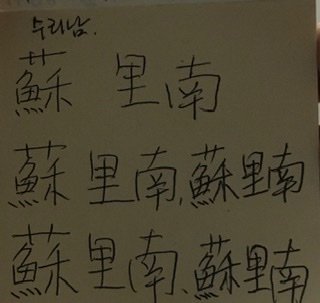 수리남.
蘇 里 南
蘇 里 南, 蘇里南
蘇 里 南, 蘇里南